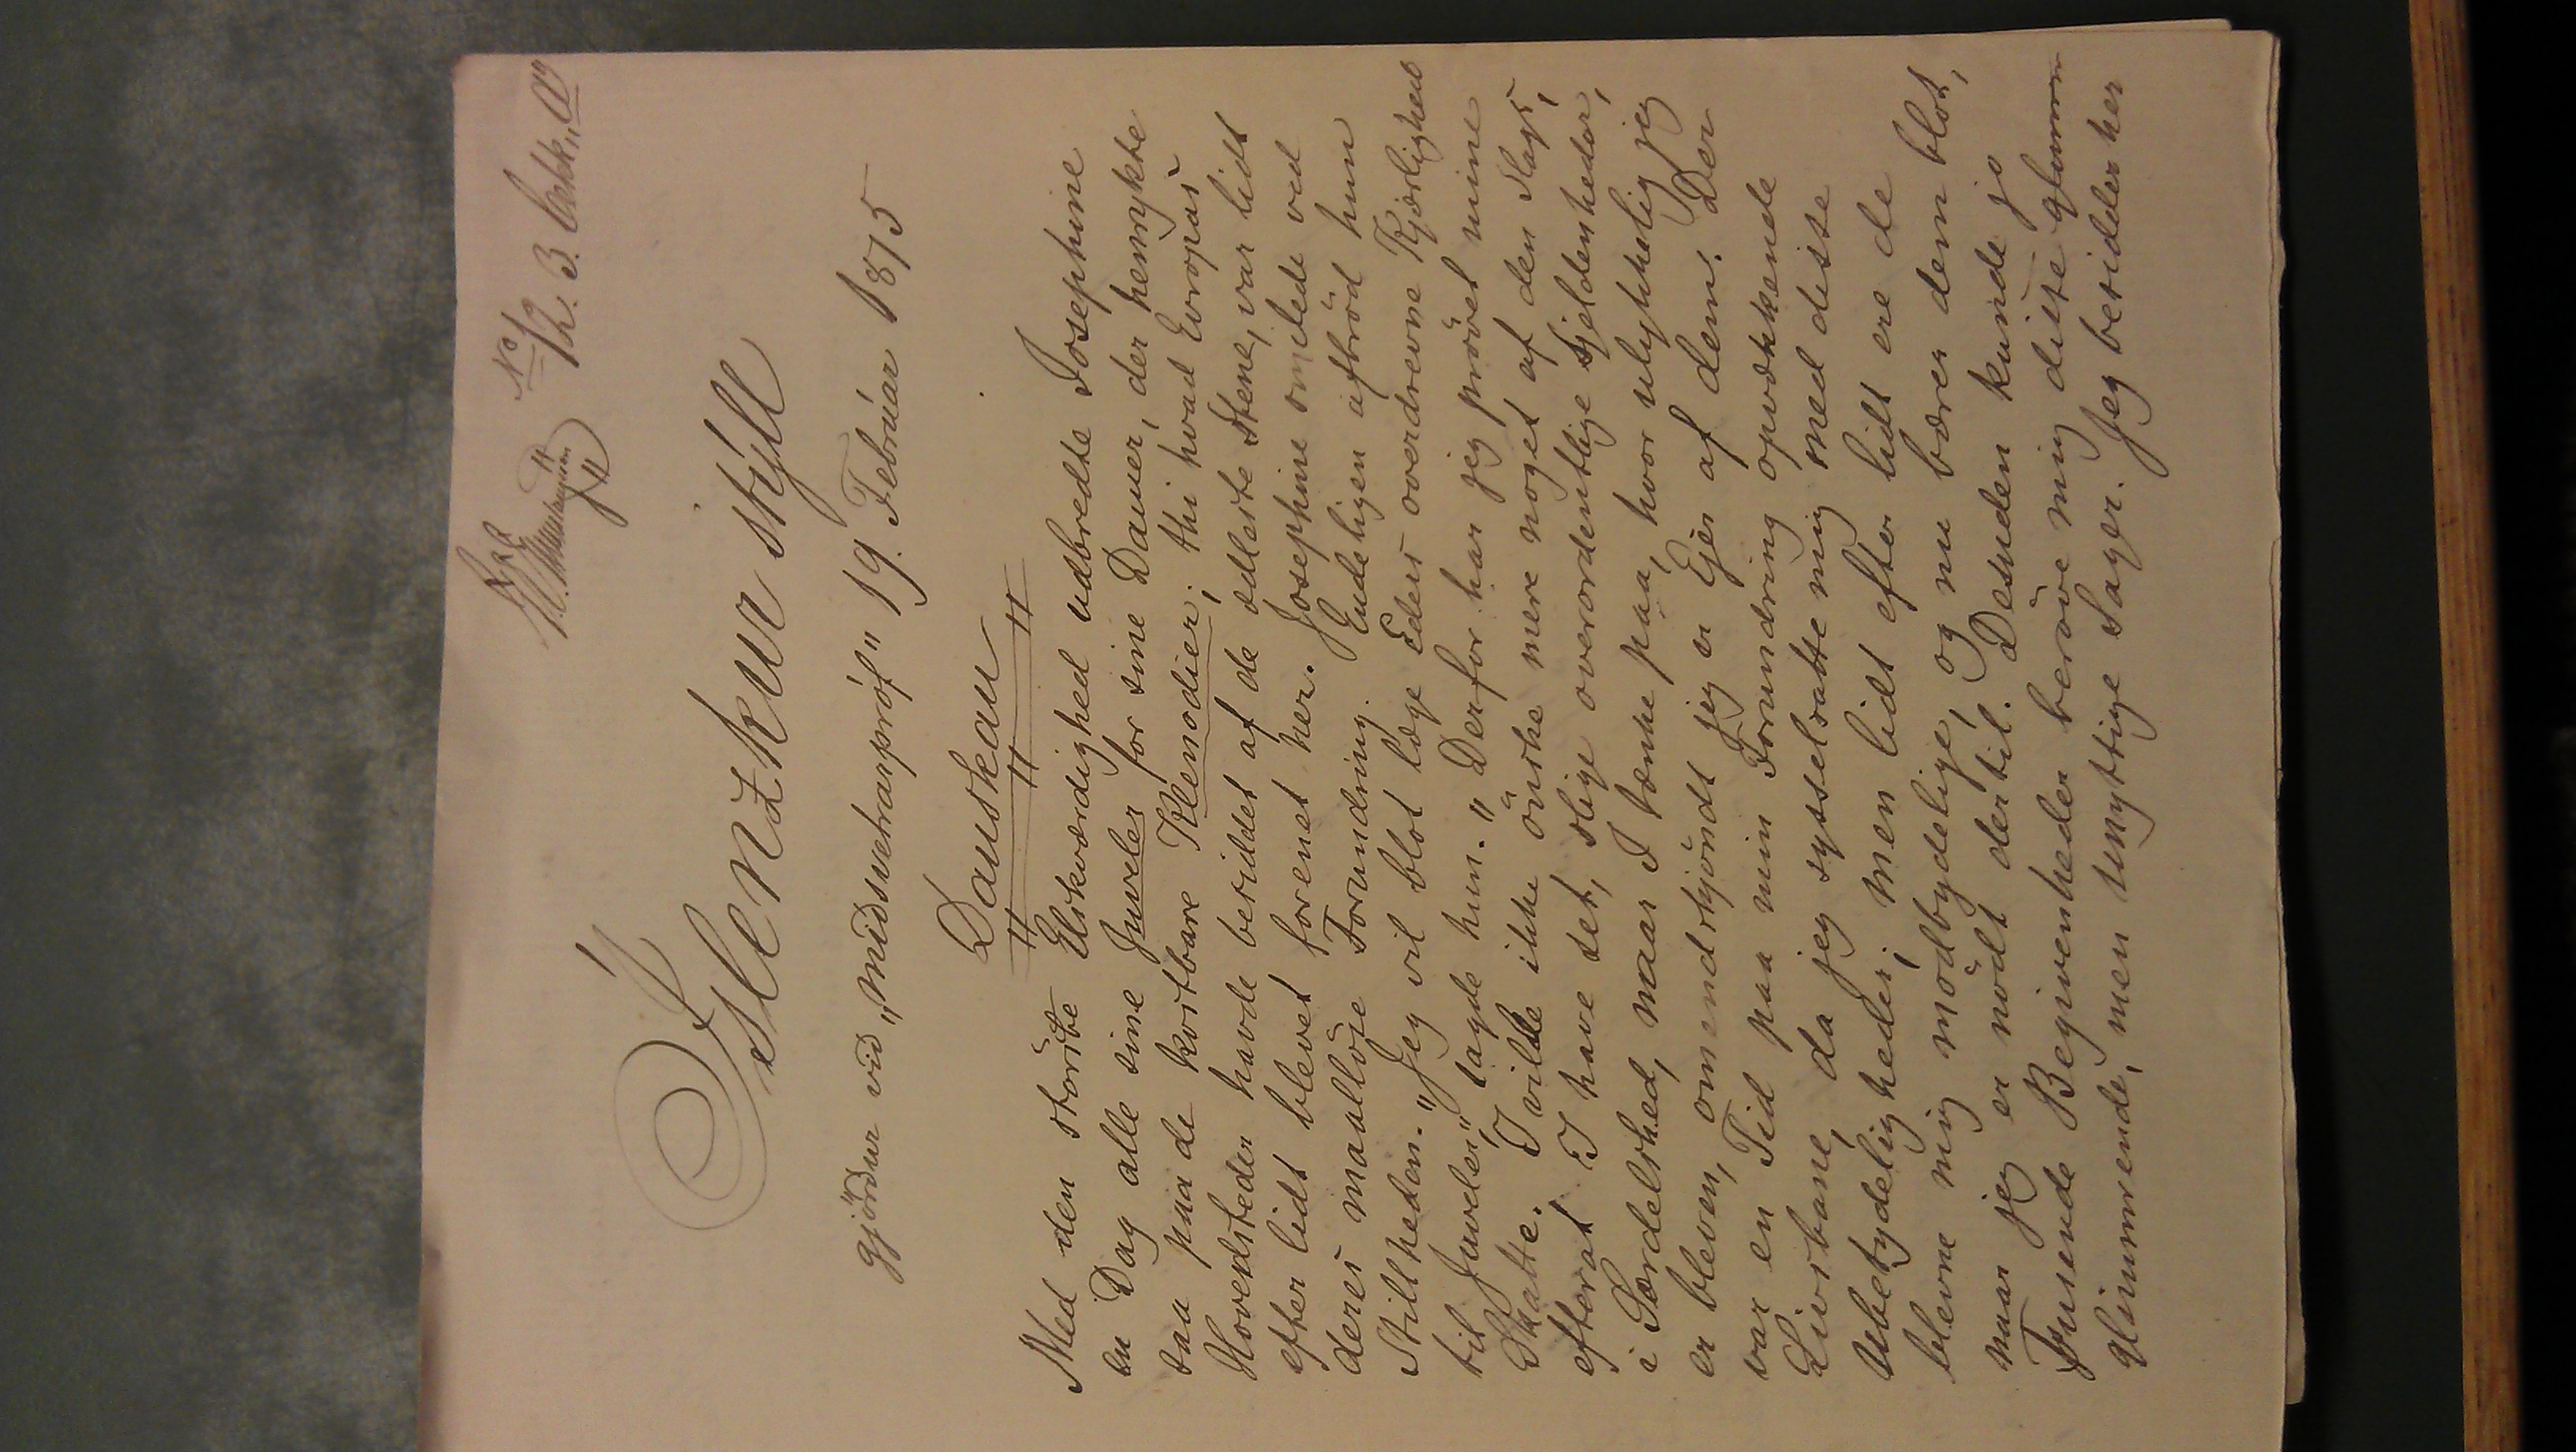 No 12. 3. bekk, A
Íslenzkur stýll
gjörður við „miðsvetrarpróf" 19. Febrúar 1875
Danskan
Med den störste Elskværdighed udbredte Josephine
en Dag alle sine Juveler for sine Damer, der henrykte
saa paa de kostbare Klenodier; thi hvad Evropas
Hovedstæder havde besiddet af de ædleste Stene, var lidt
efter lidt blevet forenet her. Josephine smilede ved
deres maallöse Forundring. Endeligen afbröd hun
Stillheden. "Jeg vil blot læge Eders overdrevne Kjærlighed
til Juveler," sagde hun. " Derfor har jeg prövet mine
Skatte. I vilde ikke önske mere noget af den Slags,
efterat I have set, slige overordentlige Sjeldenheder,
i Særdelished, naar I tænke paa, hvor ulykkelig jeg
er bleven, omendskjöndt jeg er Ejer af dem. Der
var en Tid paa min Forundring opvækkende
Livsbane, da jeg sysselsatte mig med disse
Ubetydeligheder; men lidt efter lidt ere de
blevne mig modbydelige, og nu bærer dem blot,
naar jeg er nödt dertil. Desuden kunde jo
Tusende Begivenheder beröve mig disse glimm
glimmrende, men unyttige Sager. Jeg besidder her